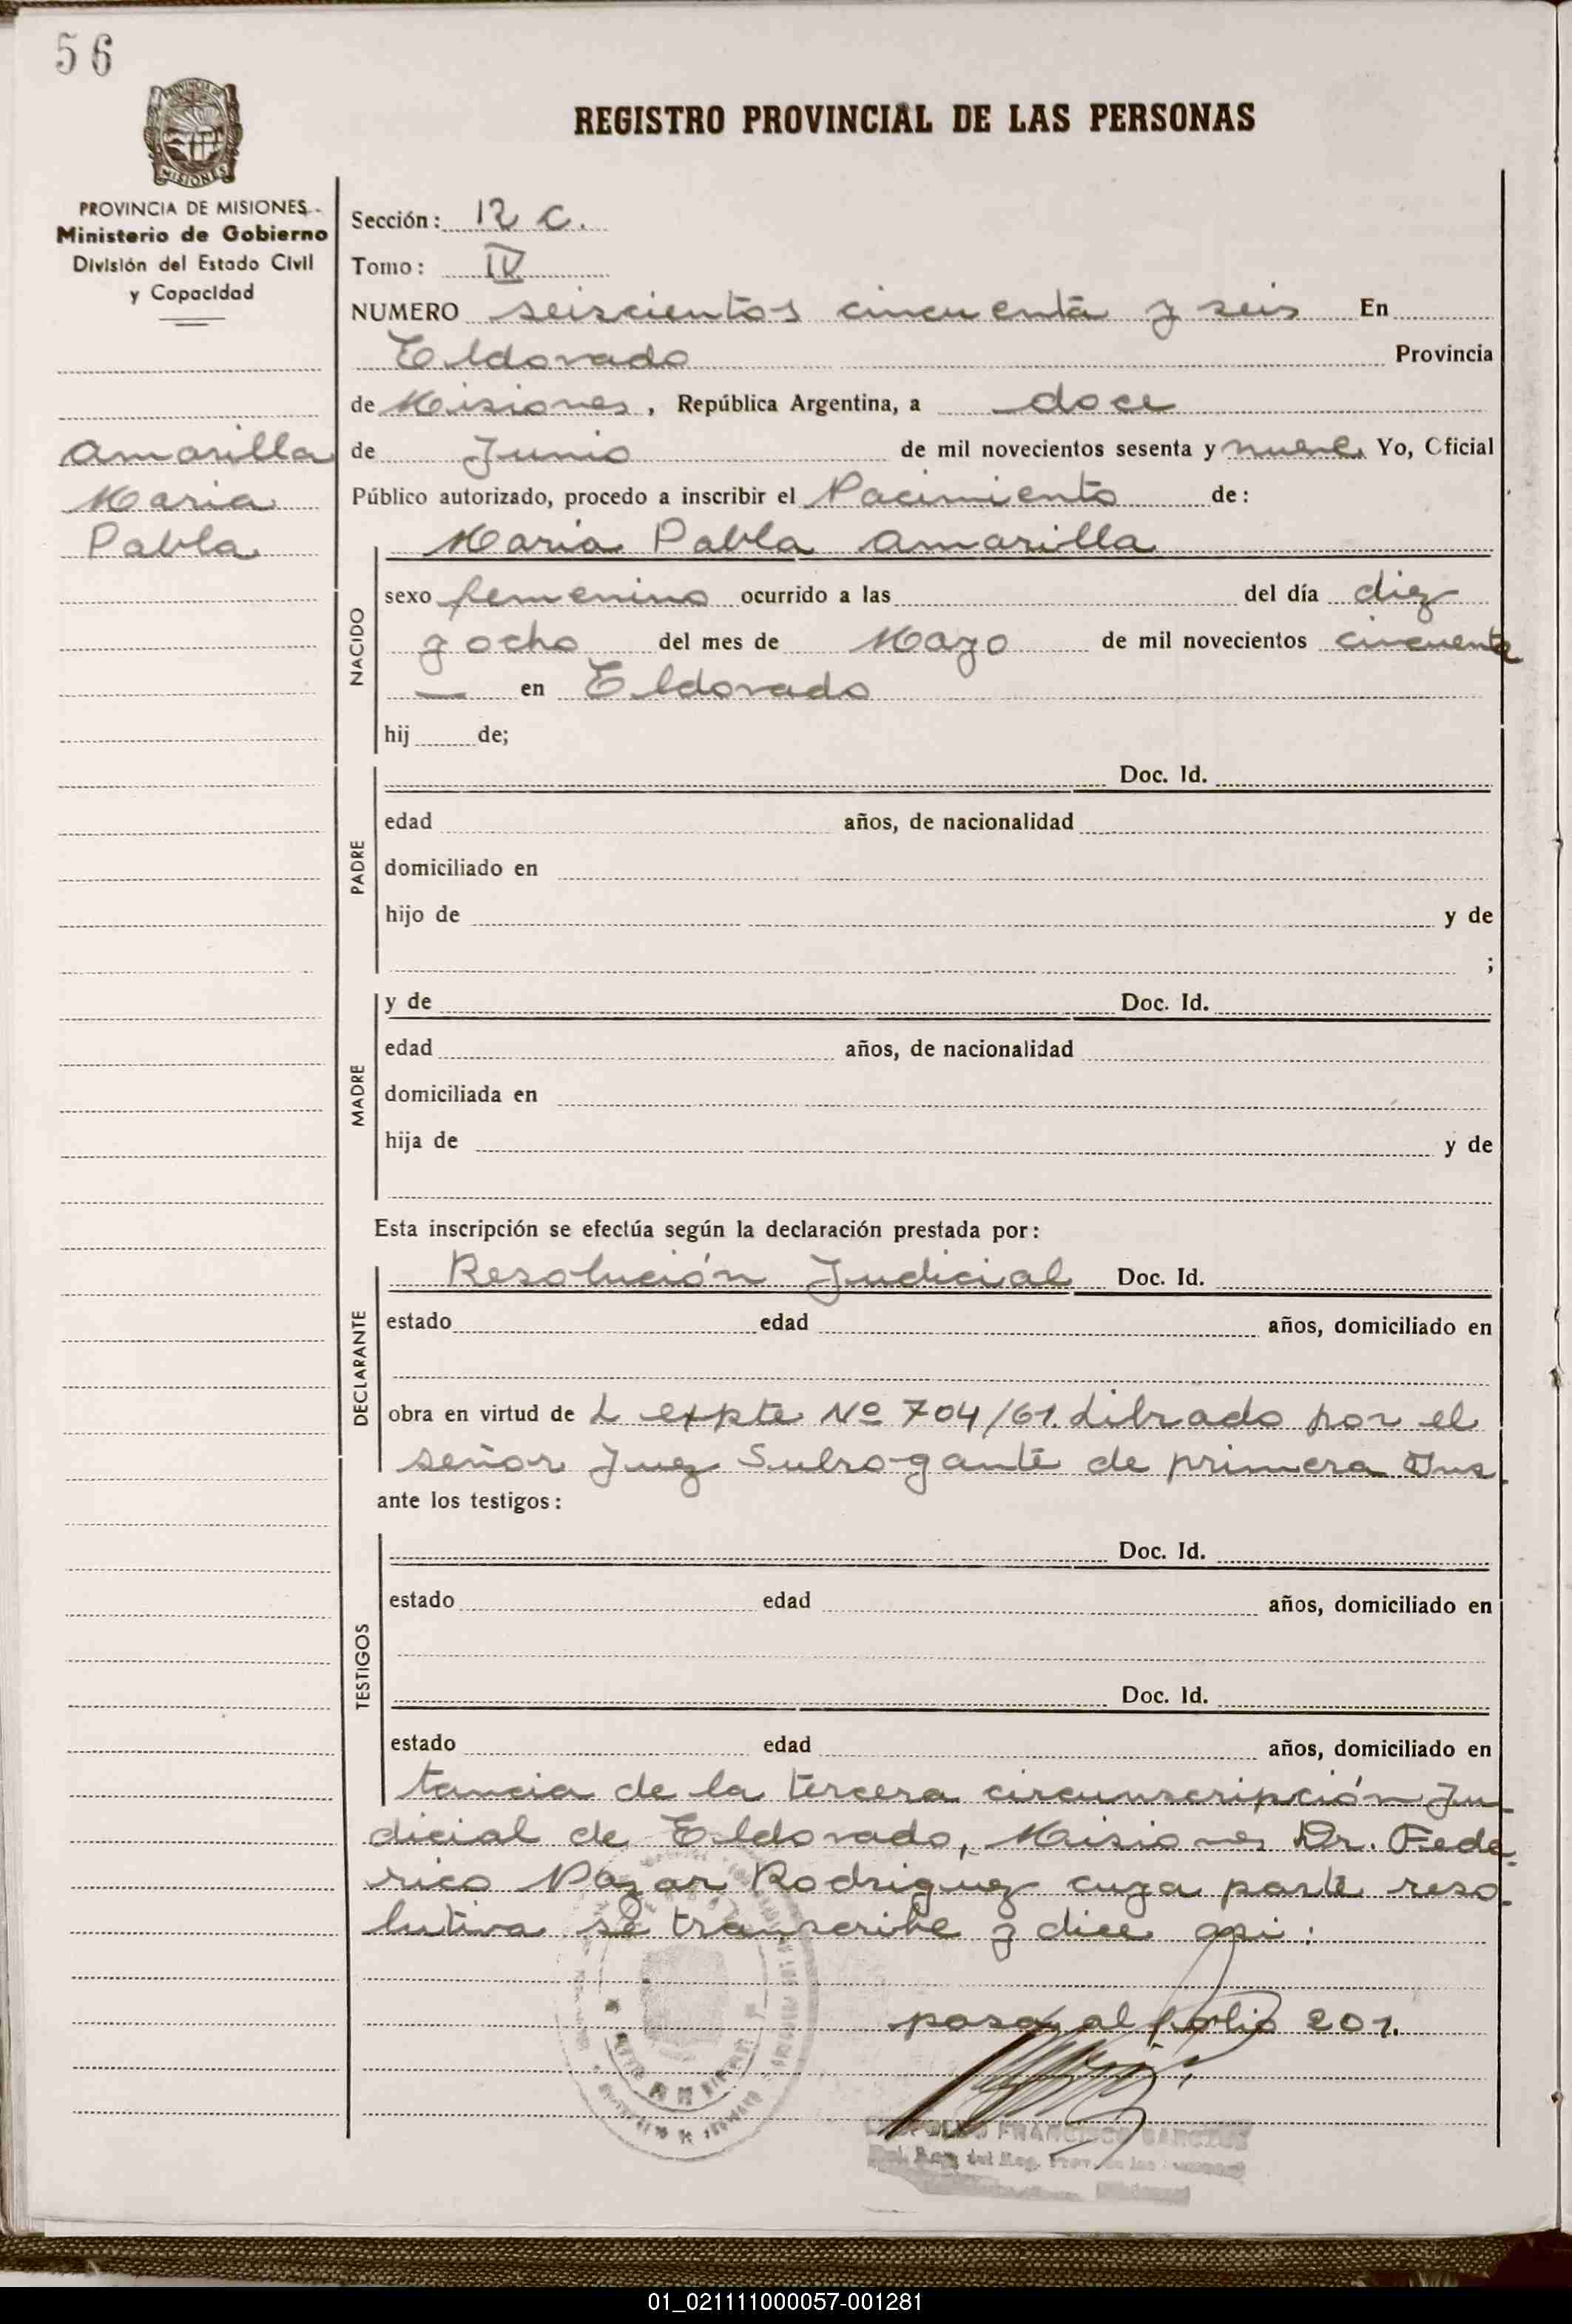 56
REGISTRO PROVINCIAL DE LAS PERSONAS
MISIONES
PROVINCIA DE MISIONES
Ministerio de Gobierno
División del Estado Civil
y Capacidad
Amarilla
Maria
Pabla
Sección: 12 C.
Tomo: IV
NUMERO seiscientos cincuenta y seis En
Eldorado Provincia
de Misiones, República Argentina, a doce
de Junio de mil novecientos sesenta y nueve. Yo, Oficial
Público autorizado, procedo a inscribir el Nacimiento de:
Maria Pabla Amarilla
NACIDO
sexo femenino ocurrido a las del día diez
y ocho del mes de Mayo de mil novecientos cincuenta
— en Eldorado
hij de;
PADRE
Doc. Id.
edad años, de nacionalidad
domiciliado en
hijo de y de
;
MADRE
y de Doc. Id.
edad años, de nacionalidad
domiciliada en
hija de y de
Esta inscripción se efectúa según la declaración prestada por:
DECLARANTE
Resolución Judicial Doc. Id.
estado edad años, domiciliado en
obra en virtud de L expte Nº 704/61. Librado por el
señor Juez Subrogante de primera Ins
ante los testigos:
TESTIGOS
Doc. Id.
estado edad años, domiciliado en
Doc. Id.
estado edad años, domiciliado en
tancia de la tercera circunscripción Ju
dicial de Eldorado, Misiones Dr. Fede
rico Nazar Rodriguez cuya parte reso
lutiva se transcribe y dice asi:
pasa al folio 201.
FRANCISCO
01_021111000057-001281